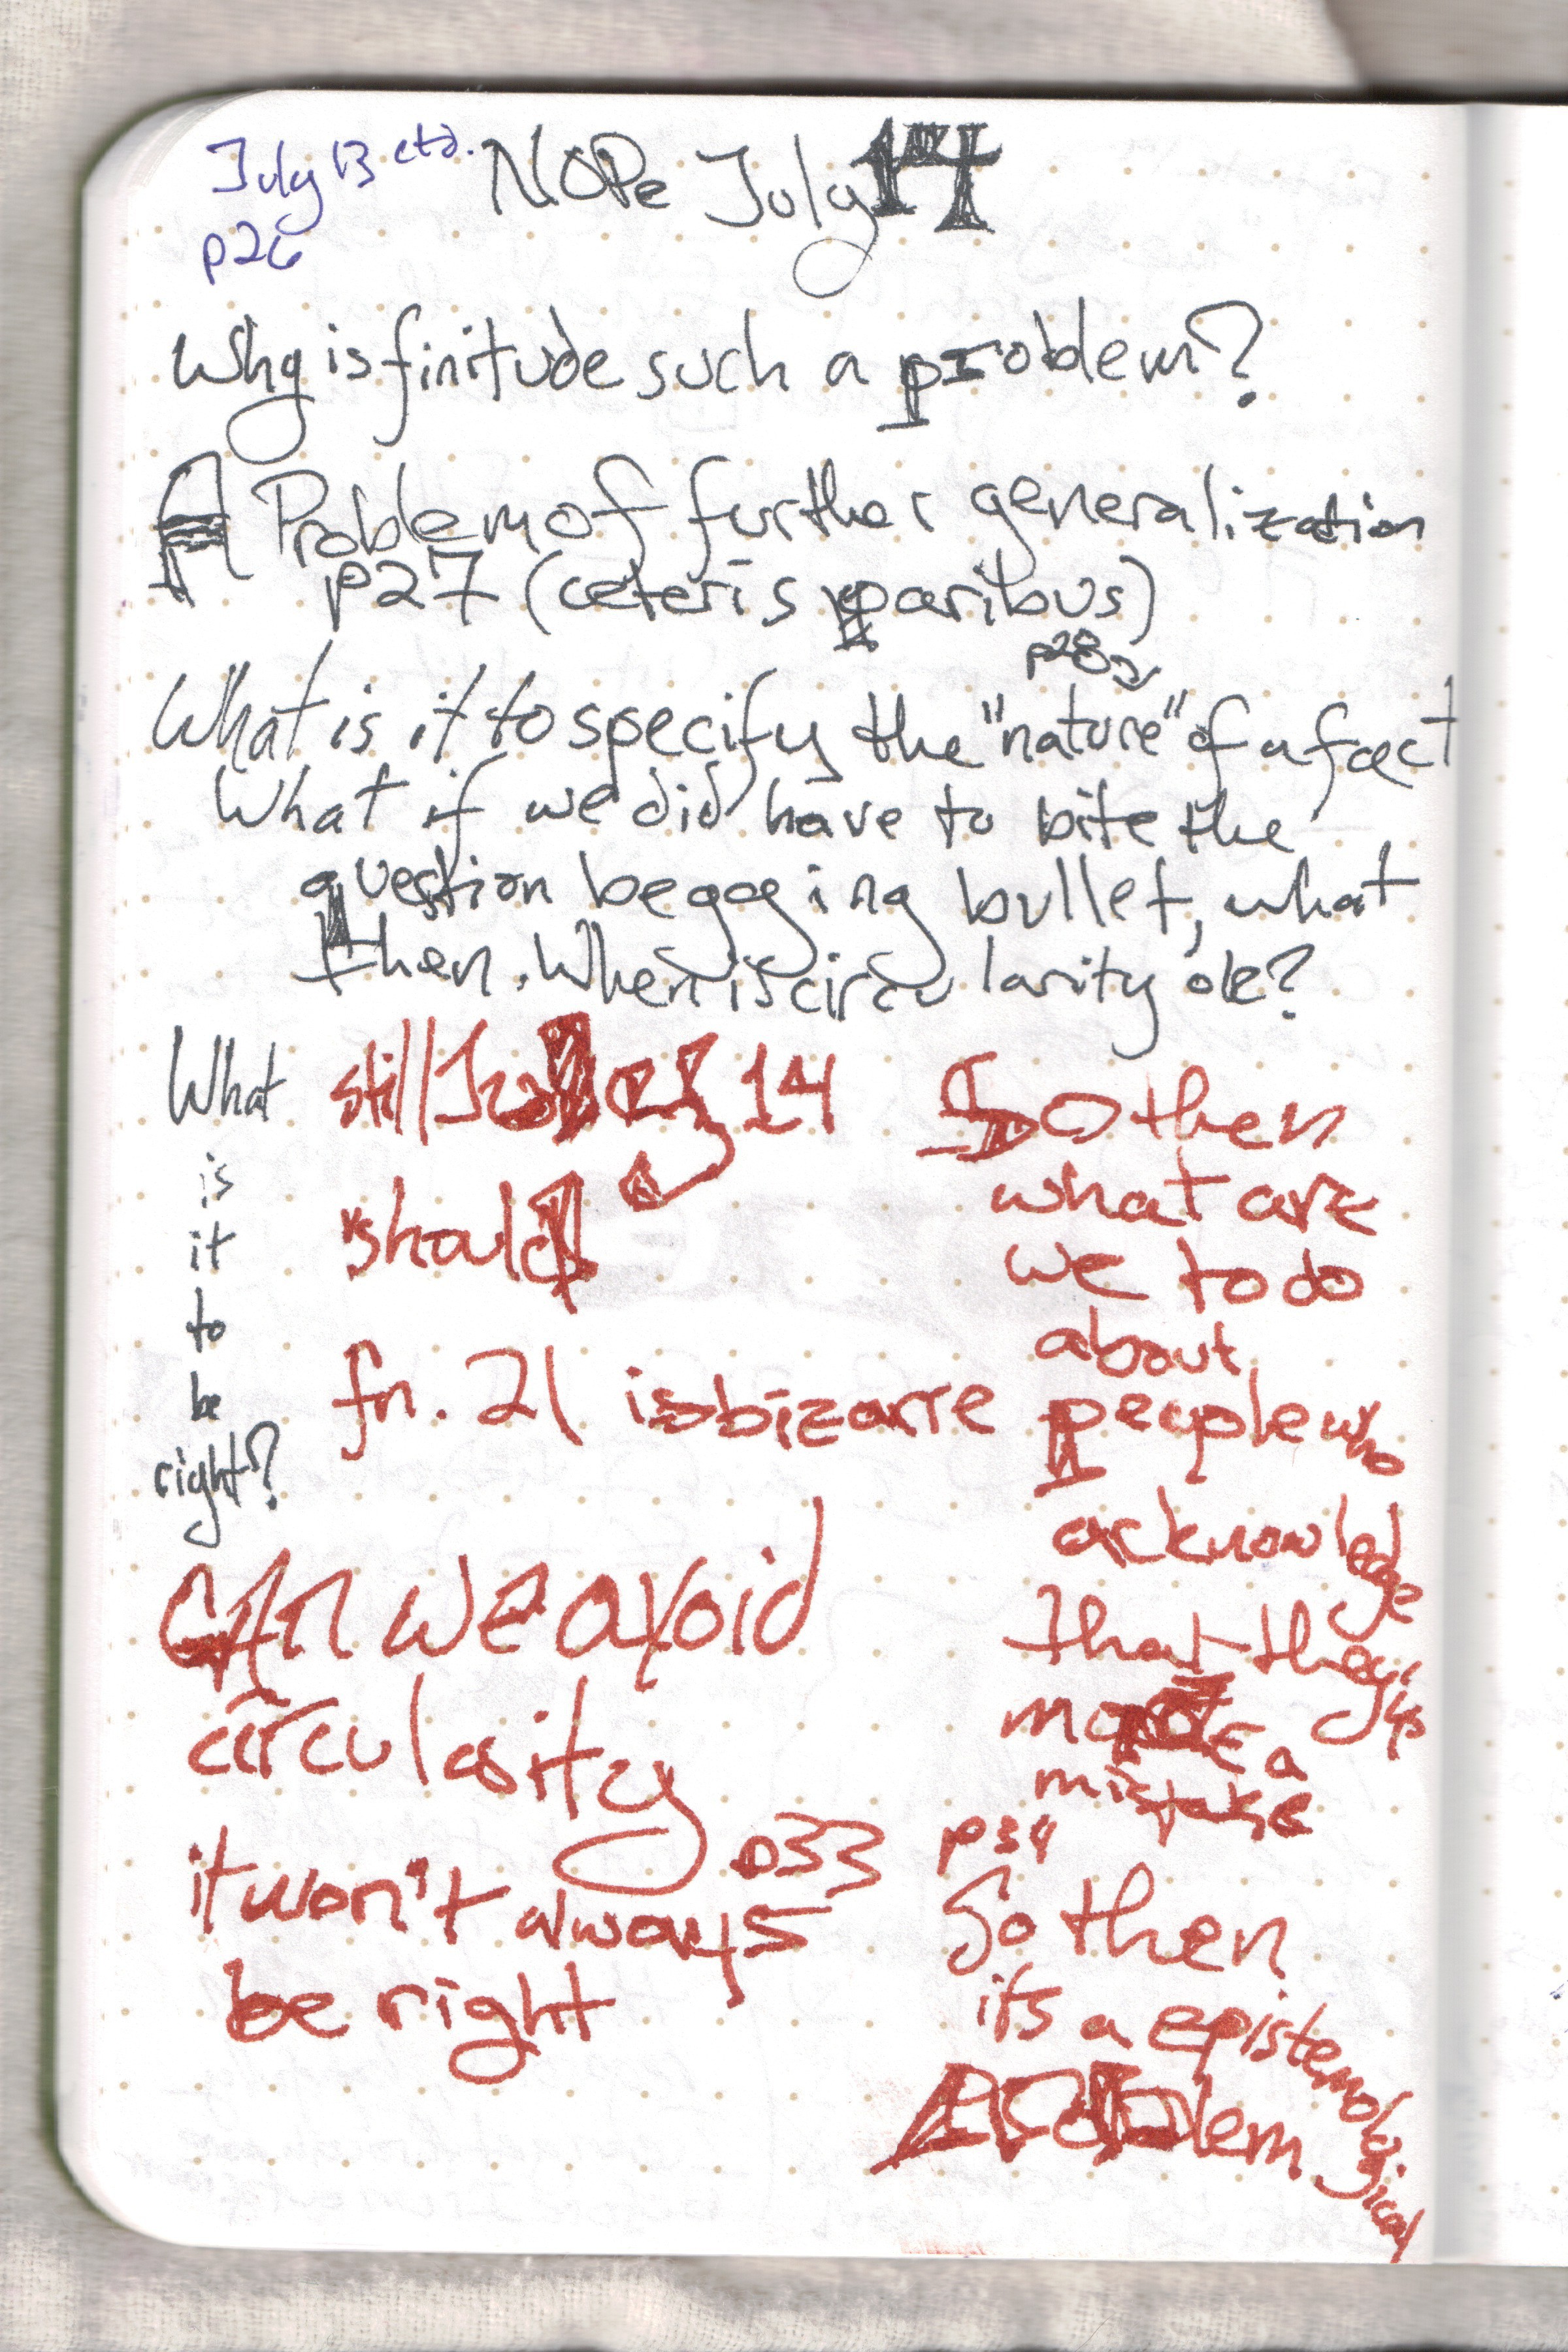 July 13 ctd. NOPe July 14
p26
Why is finitude such a problem?
A Problem of further generalization
p27 (ceteris paribus)
p28
What is it to specify the "nature" of a fact
What if we did have to bite the
question begging bullet, what
then. When is circularity ok?
What
is
it
to
be
right?
still July 14
should
fn. 21 is bizarre
CAn we avoid
circularity
p33
it won't always
be right
So then
what are
we to do
about
people who
acknowledge
that they
make a
mistake
p34
So then
it's a epistemological
problem